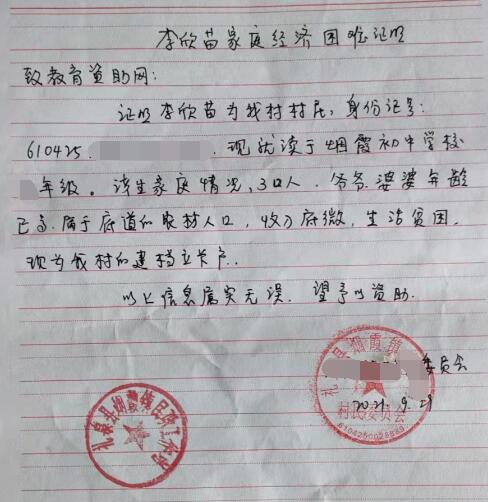 李欣苗家庭经济困难证明
致教育资助网:
证明李欣苗为我村村民,身份证号:
610425 现就读于烟霞初中学校
年级。该生家庭情况,3口人,爷爷、婆婆年龄
已高,属于底道的农村人口,收入底微,生活贫困,
现为我村的建档立卡户.
以上信息属实无误.望予以资助.
委员会
2021.9.29
礼泉县烟霞镇
村民委员会
6104250028889
礼泉县烟霞镇民政工作站